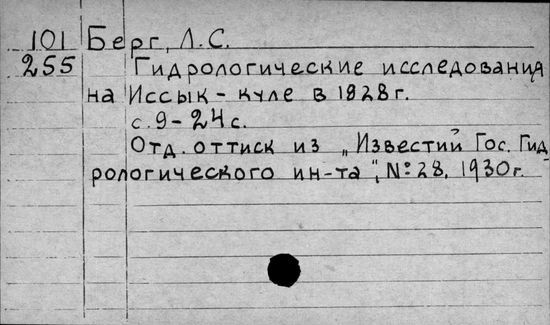 101 Берг, Л.С.
255 Гидрологические исследования
на Иссык-куле в 1928г.
с. 9-24 с.
Отд. оттиск из „Известий Гос. Гид
рологического ин-та", №28, 1930г.